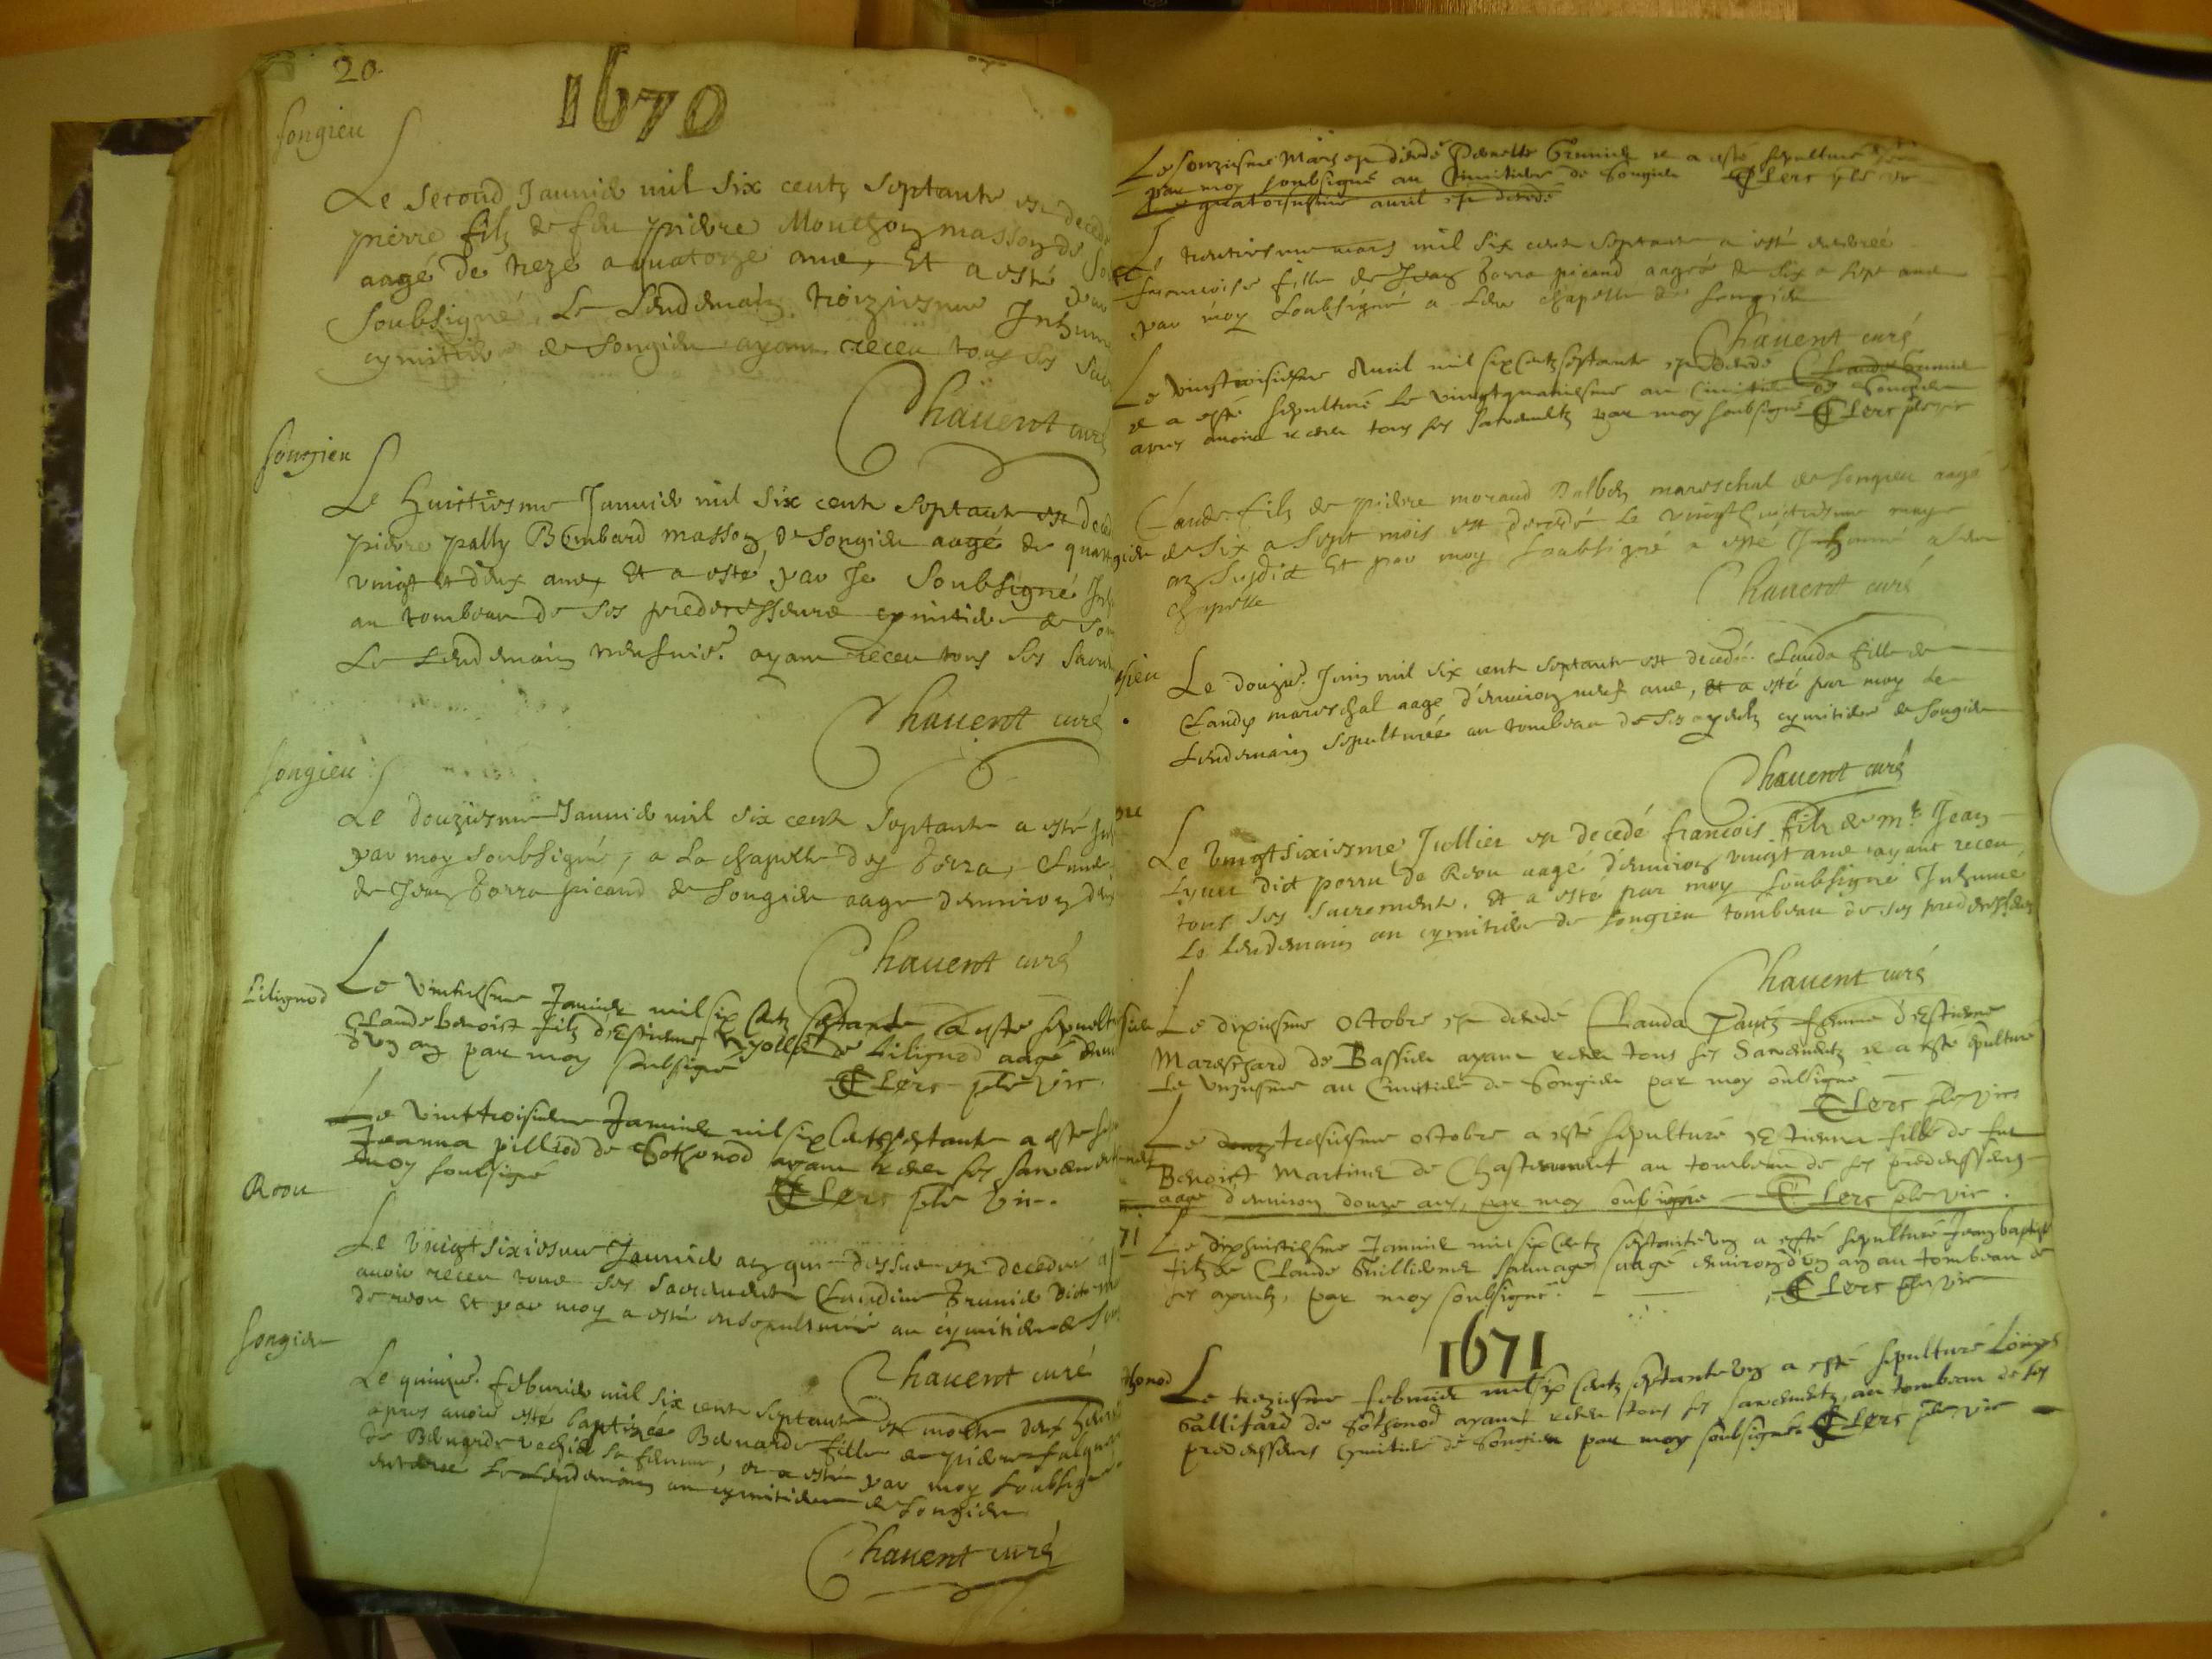 20
1670
Songieu
Le second Januier mil six centz septante est decedé
pierre filz de feu pierre Mouchon masson de
aagé de treze a quatorze ans, Et a esté par
soubsigné le lendemain troiziesme Inhumé
cymitiere de Songieu ayant receu tous ses sacr
Chauent curé
Songieu
Le huictiesme Januier mil six cent septante est deced
pierre pally Bombard masson de Songieu aagé de quatre
vingt et deux ans, Et a esté par Je soubsigné Inh
au tombeau de ses predecesseurs cymitiere de Son
Le Lendemain neufuie. ayant receu tous ses sacre
Chauent curé
Songieu
Le douziesme Januier mil six cent septante a esté Inh
par moy soubsigné, a la chapelle des Forra, Claude
de Jean Forra picard de Songieu aagé denuiron d
Chauent curé
Lilignod
Le vintiesme Januier mil six Centz septante a esté sepultu
Claude benoist filz d'Estienne de Lilignod aagé denui
d'vn an par moy subsigné
C Lers ptre vic.
Le vinttroisiesme Januier mil six Centz septante a esté se
Jeanna pilliod de Sothonod ayant receu ses sacremen
moy soubsigné
C Lers ptre vic.
Reou
Le vingtsixiesme Januier an que dessus est decedée ap
auoir receu tous ses sacrements Claudine Brunier dicte
de reou Et par moy a esté ensepulturée au cymitiere de Son
Chauent curé
Songieu
Le quinzie. feburier mil six cent septante est morte deux heures
apres auoir esté baptizée Benarde fille de pierre falq
de Benarde vechie sa femme, et a esté par moy soubsigné
enterré le Lendemain au cymitiere de Songieu
Chauent curé
Le onziesme Mars est decedé Pernette Grunier et a esté sepulturé
par moy soubsigné au Cimitiere de Songieu C Lers ptre vic
Le quatorsiesme auril est decedé
Le trentiesme mars mil six cent septante a esté enterrée
francoise fille de Jean Forra picard aagée de six a sept ans
par moy soubsigné a leur chapelle de Songieu
Chauent curé
Le vinttroisiesme Auril mil six Centz septante est decedé Claude
et a esté sepulturé le vingtquatriesme au Cimitiere de Songieu
apres auoir receu tous ses sacrementz par moy soubsigné C Lers ptre vic
Claude filz de pierre moraud Balbon mareschal de Songieu aagé
de six a sept mois est decedé le vingthuictiesme may
an susdict Et par moy soubsigné a esté Inhumé a leur
chapelle
Chauent curé
Le douzie. Juin mil six cent septante est decedée Clauda fille de
Claudy mareschal aage d'enuiron neuf ans, et a esté par moy le
Lendemain sepulturée au tombeau de ses ayeulz cymitiere de Songieu
Chauent curé
Le vingtsixiesme Juillet est decedé francois filz de mtre Jean
Lyuet dict perru de Reou aagé d'enuiron vingt ans ayant receu
tous ses sacrements. Et a esté par moy soubsigné Inhumé
Le lendemain au cymitiere de Songieu tombeau de ses predecesseurs
Chauent curé
Le dixiesme Octobre est decedé Clauda Pauez femme d'Estienne
Mareschard de Bassieu ayant receu tous ses Sacrementz et a esté sepulture
Le vnziesme au Cimitiere de Songieu par moy soubsigné
C Lers ptre vic
Le douz tresiesme octobre a esté sepulturé Estienna fille de feu
Benoist Martinet de Chasteauneuf au tombeau de ses predecesseurs
aage d'enuiron douze ans, par moy soubsigné C Lers ptre vic.
71
Le dixhuictiesme Januier mil six Centz septantevn a esté sepulturé Jean baptiste
filz de Claude Guilliermet sauuage aagé enuiron d'vn an au tombeau de
ses ayeulz, par moy soubsigné. C Lers ptre vic
1671
thonod
Le treziesme febvrier mil six Centz septantevn a esté sepulturé Louys
Gallifard de Sothonod ayant receu tous ses sacrementz, au tombeau de ses
predecesseurs Cimitiere de Songieu par moy soubsigné C Lers ptre vic